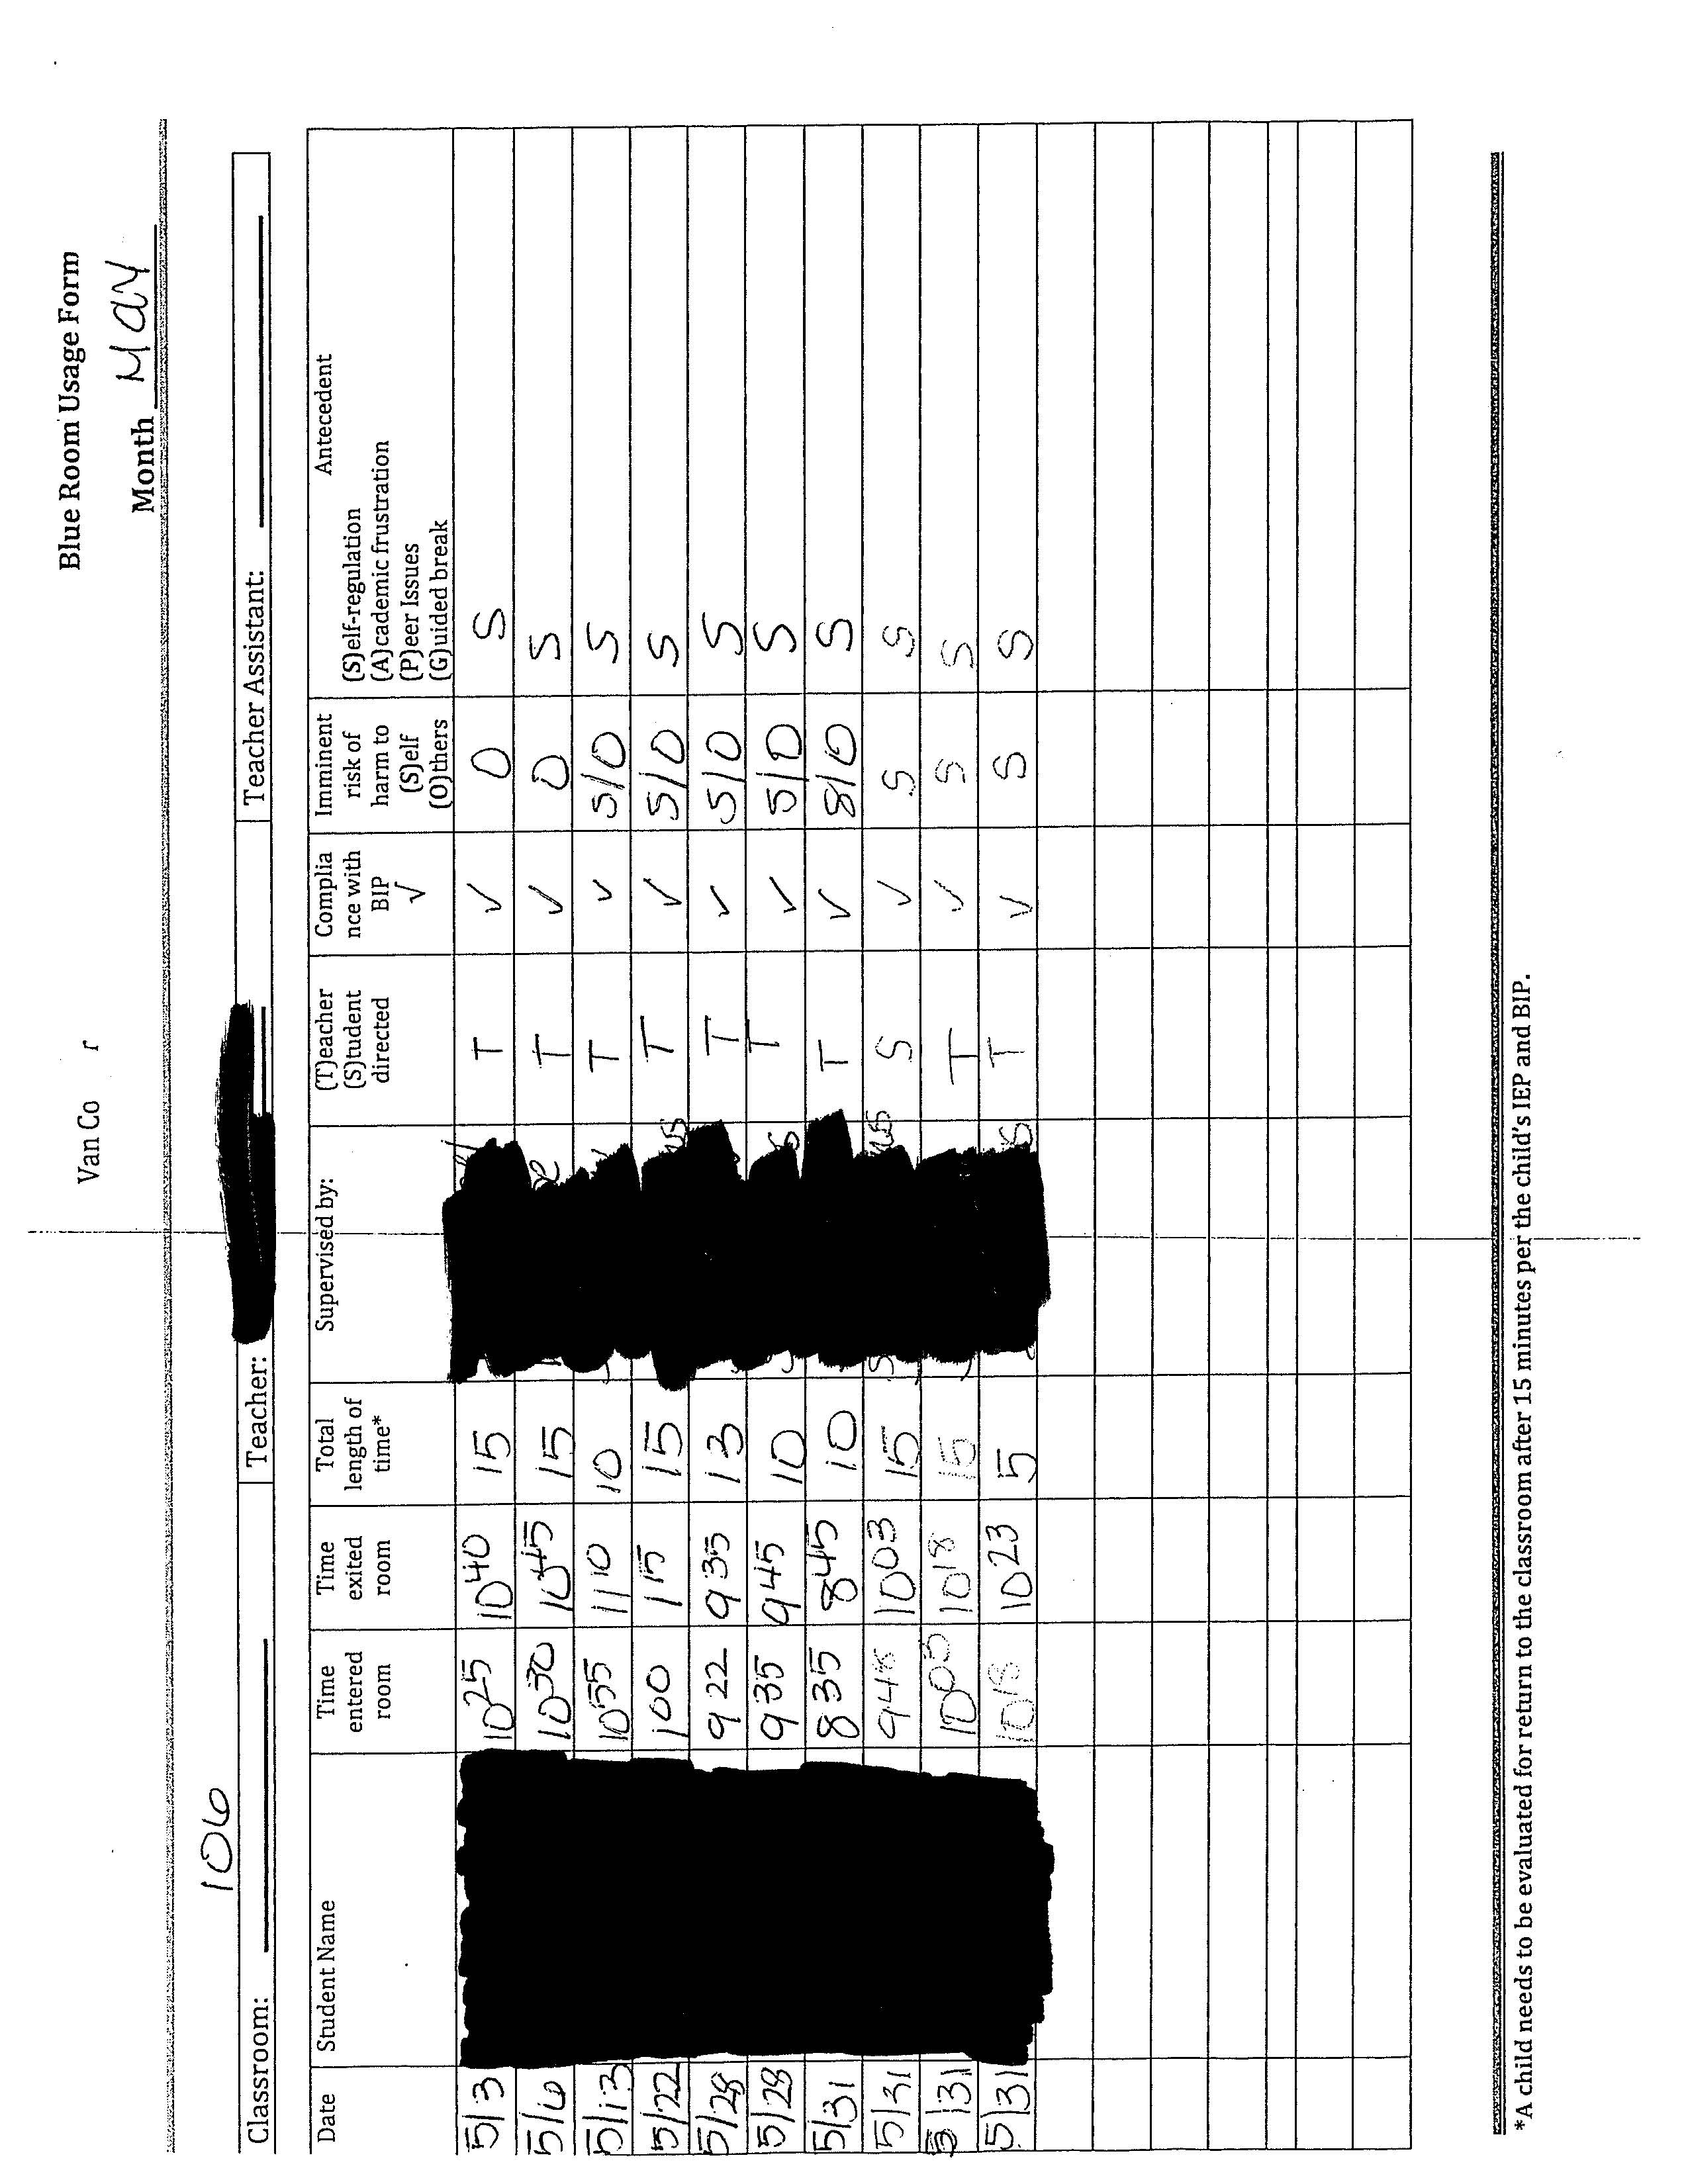 Van Co r
Blue Room Usage Form
Month MAY
106
Classroom: Teacher: Teacher Assistant:
Date Student Name Time entered room Time exited room Total length of time* Supervised by: (T)eacher (S)tudent directed Complia nce with BIP √ Imminent risk of harm to (S)elf (O)thers Antecedent (S)elf-regulation (A)cademic frustration (P)eer Issues (G)uided break
5/3 1025 1040 15 T ✓ O S
5/6 1030 1045 15 T ✓ O S
5/13 1055 1110 10 T ✓ S/O S
5/22 100 115 15 T ✓ S/O S
5/28 922 935 13 T ✓ S/O S
5/28 935 945 10 T ✓ S/O S
5/31 835 845 10 T ✓ S/O S
5/31 948 1003 15 S ✓ S S
5/31 1003 1018 15 T ✓ S S
5/31 1018 1023 5 T ✓ S S
*A child needs to be evaluated for return to the classroom after 15 minutes per the child's IEP and BIP.